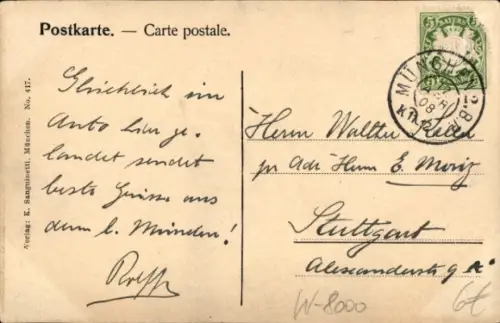 Postkarte. — Carte postale.
Glücklich im
Auto hier ge-
landet sendet
beste Grüsse aus
dem l. München!
Rolf
Verlag: K. Sanguinetti, München. No. 417.
5 BAYERN
MÜNCHEN
08
Herrn Walther
pr Adr Herrn E. Moriz
Stuttgart
Alexanderstr 9
W-8000
6€